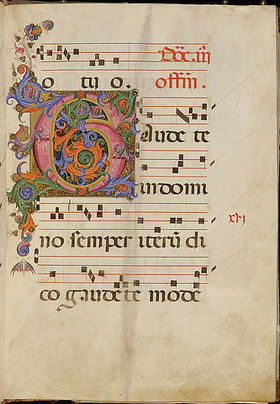 Dōc. iii
o tu o. offm̄.
Gaude te
in domi
no semper iterū di
co gaudete mode